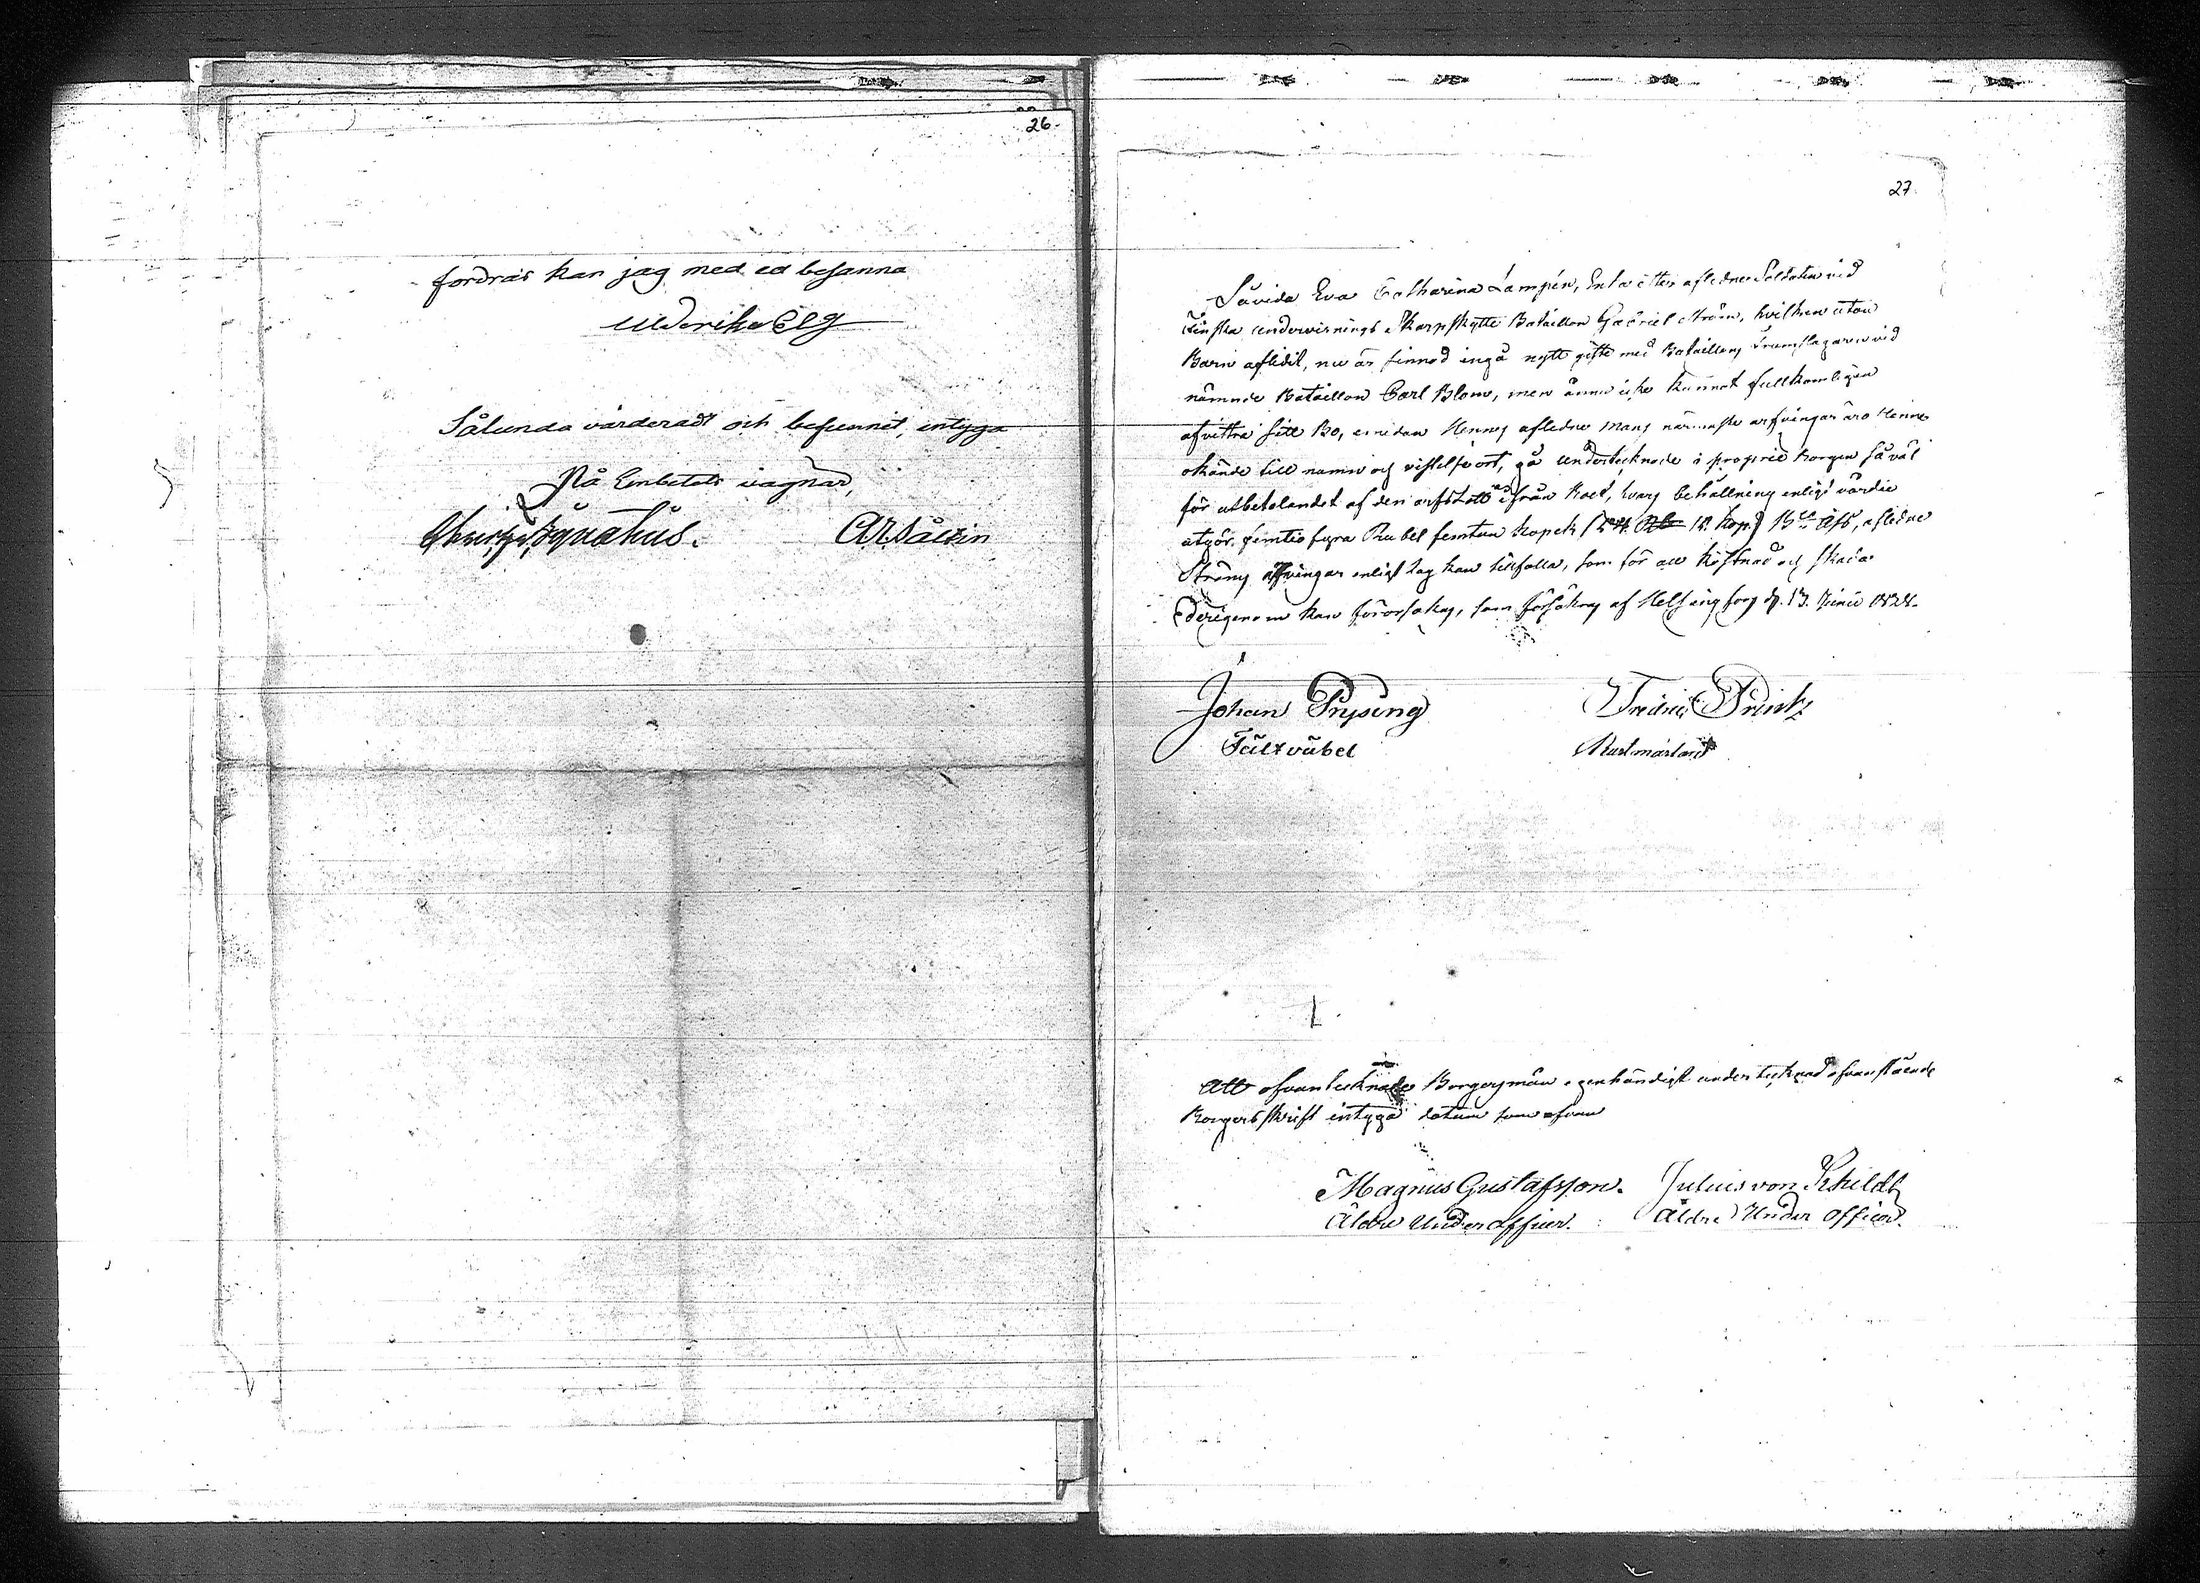 26.
fordras kan jag med ed besanna
Ulderika Elg
Sålunda värderadt och befunnit, intyga
På Embetets vägnar,
Ignatius. CR Sålin
27
Såvida Eva Catharina Lampén, Enka efter aflidne Soldaten vid
Finska Undervisnings Skarpskytte Bataillon Gabriel Ström, hvilken utan
Barn aflidit, nu är sinnad ingå nytt gifte med Bataillons Trumslagaren vid
nämnde Bataillon Carl Blom, men ännu icke kunnat fullkomligen
afvittra sitt Bo, emedan Hennes aflidne mans närmaste arfvingar äro Henne
okände till namn och vistelse ort, gå undertecknade i proprie borgen så väl
för utbetalandet af den arfslott ifrån Boet, hvars behållning enligt värdie
utgör femtio fyra Rubel femtan kopek (54 Rb 15 kop.) B:co Ass, aflidne
Ströms arfvingar enligt Lag kan tillfalla, som för all kostnad och skada
derigenom kan förorsakas, som försäkras af Helsingfors d. 13. Junii 1828.
Johan Prysing Fredric Printz
Fältväbel
Att ofvantecknade Borgesmän egenhändigt undertecknad ofvanstående
Borgens skrift intyga datum som ofvan
Magnus Gustafsson. Julius von Schildt
Äldre Under officer. Äldre Under officer.